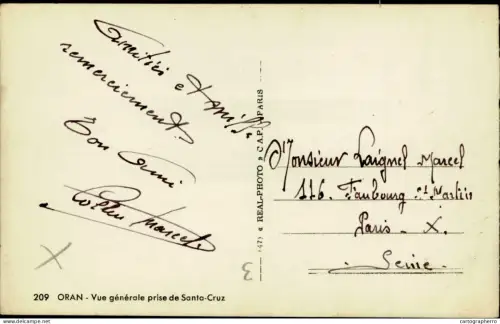 Amitiés et
remerciement.
Ton Ami
Marcel
(47) REAL-PHOTO C.A.P. PARIS
Monsieur Laignel Marcel
116. Faubourg St Martin
Paris - X.
Seine
3
209 ORAN - Vue générale prise de Santa-Cruz
cartographerro.com